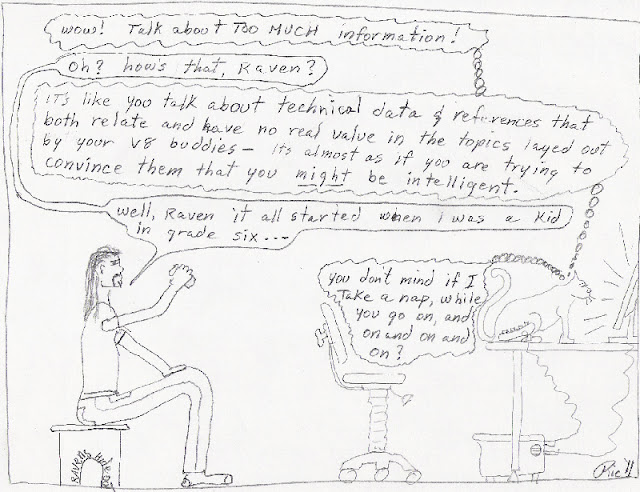 wow! Talk about TOO MUCH information!
Oh? how's that, Raven?
IT's like you talk about technical data & references that
both relate and have no real value in the topics layed out
by your V8 buddies - its almost as if you are trying to
convince them that you might be intelligent.
well, Raven it all started when i was a kid
in grade six...
you don't mind if I
Take a nap, while
you go on, and
on and on and
on?